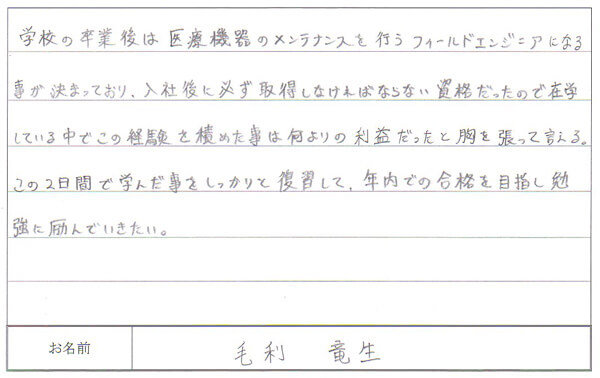 学校の卒業後は医療機器のメンテナンスを行うフィールドエンジニアになる
事が決まっており、入社後に必ず取得しなければならない資格だったので在学
している中でこの経験を積めた事は何よりの利益だったと胸を張って言える。
この2日間で学んだ事をしっかりと復習して、年内での合格を目指し勉
強に励んでいきたい。
お名前 毛利 竜生